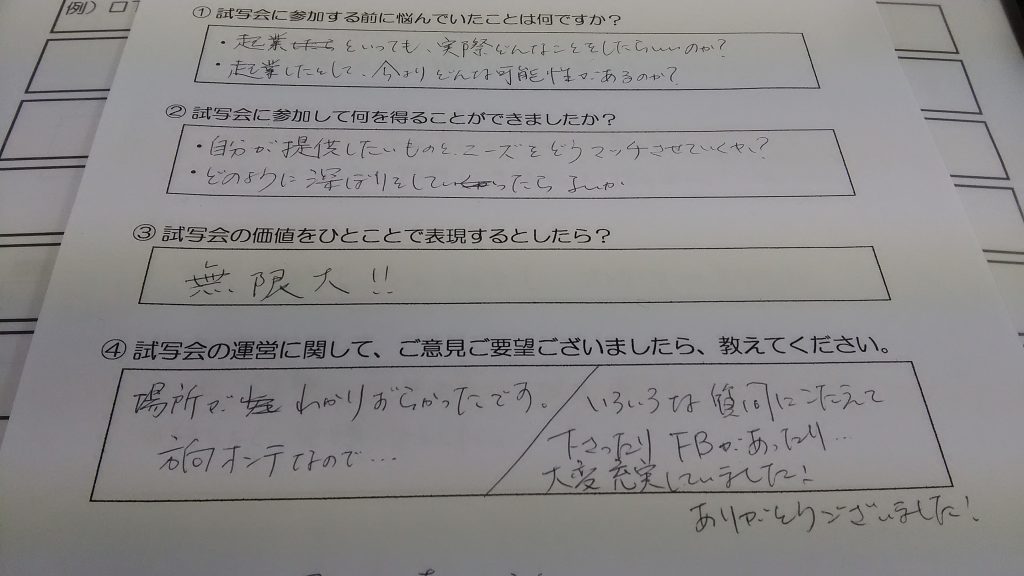 例）
① 試写会に参加する前に悩んでいたことは何ですか？
・起業といっても、実際どんなことをしたらいいのか？
・起業したとして、今よりどんな可能性があるのか？
② 試写会に参加して何を得ることができましたか？
・自分が提供したいものと、ニーズをどうマッチさせていくか？
・どのように深ぼりをしていったらよいか
③ 試写会の価値をひとことで表現するとしたら？
無限大!!
④ 試写会の運営に関して、ご意見ご要望ございましたら、教えてください。
場所が わかりづらかったです。
方向オンチなので…
いろいろな質問にこたえて
下さったり FBがあったり…
大変充実していました！
ありがとうございました！